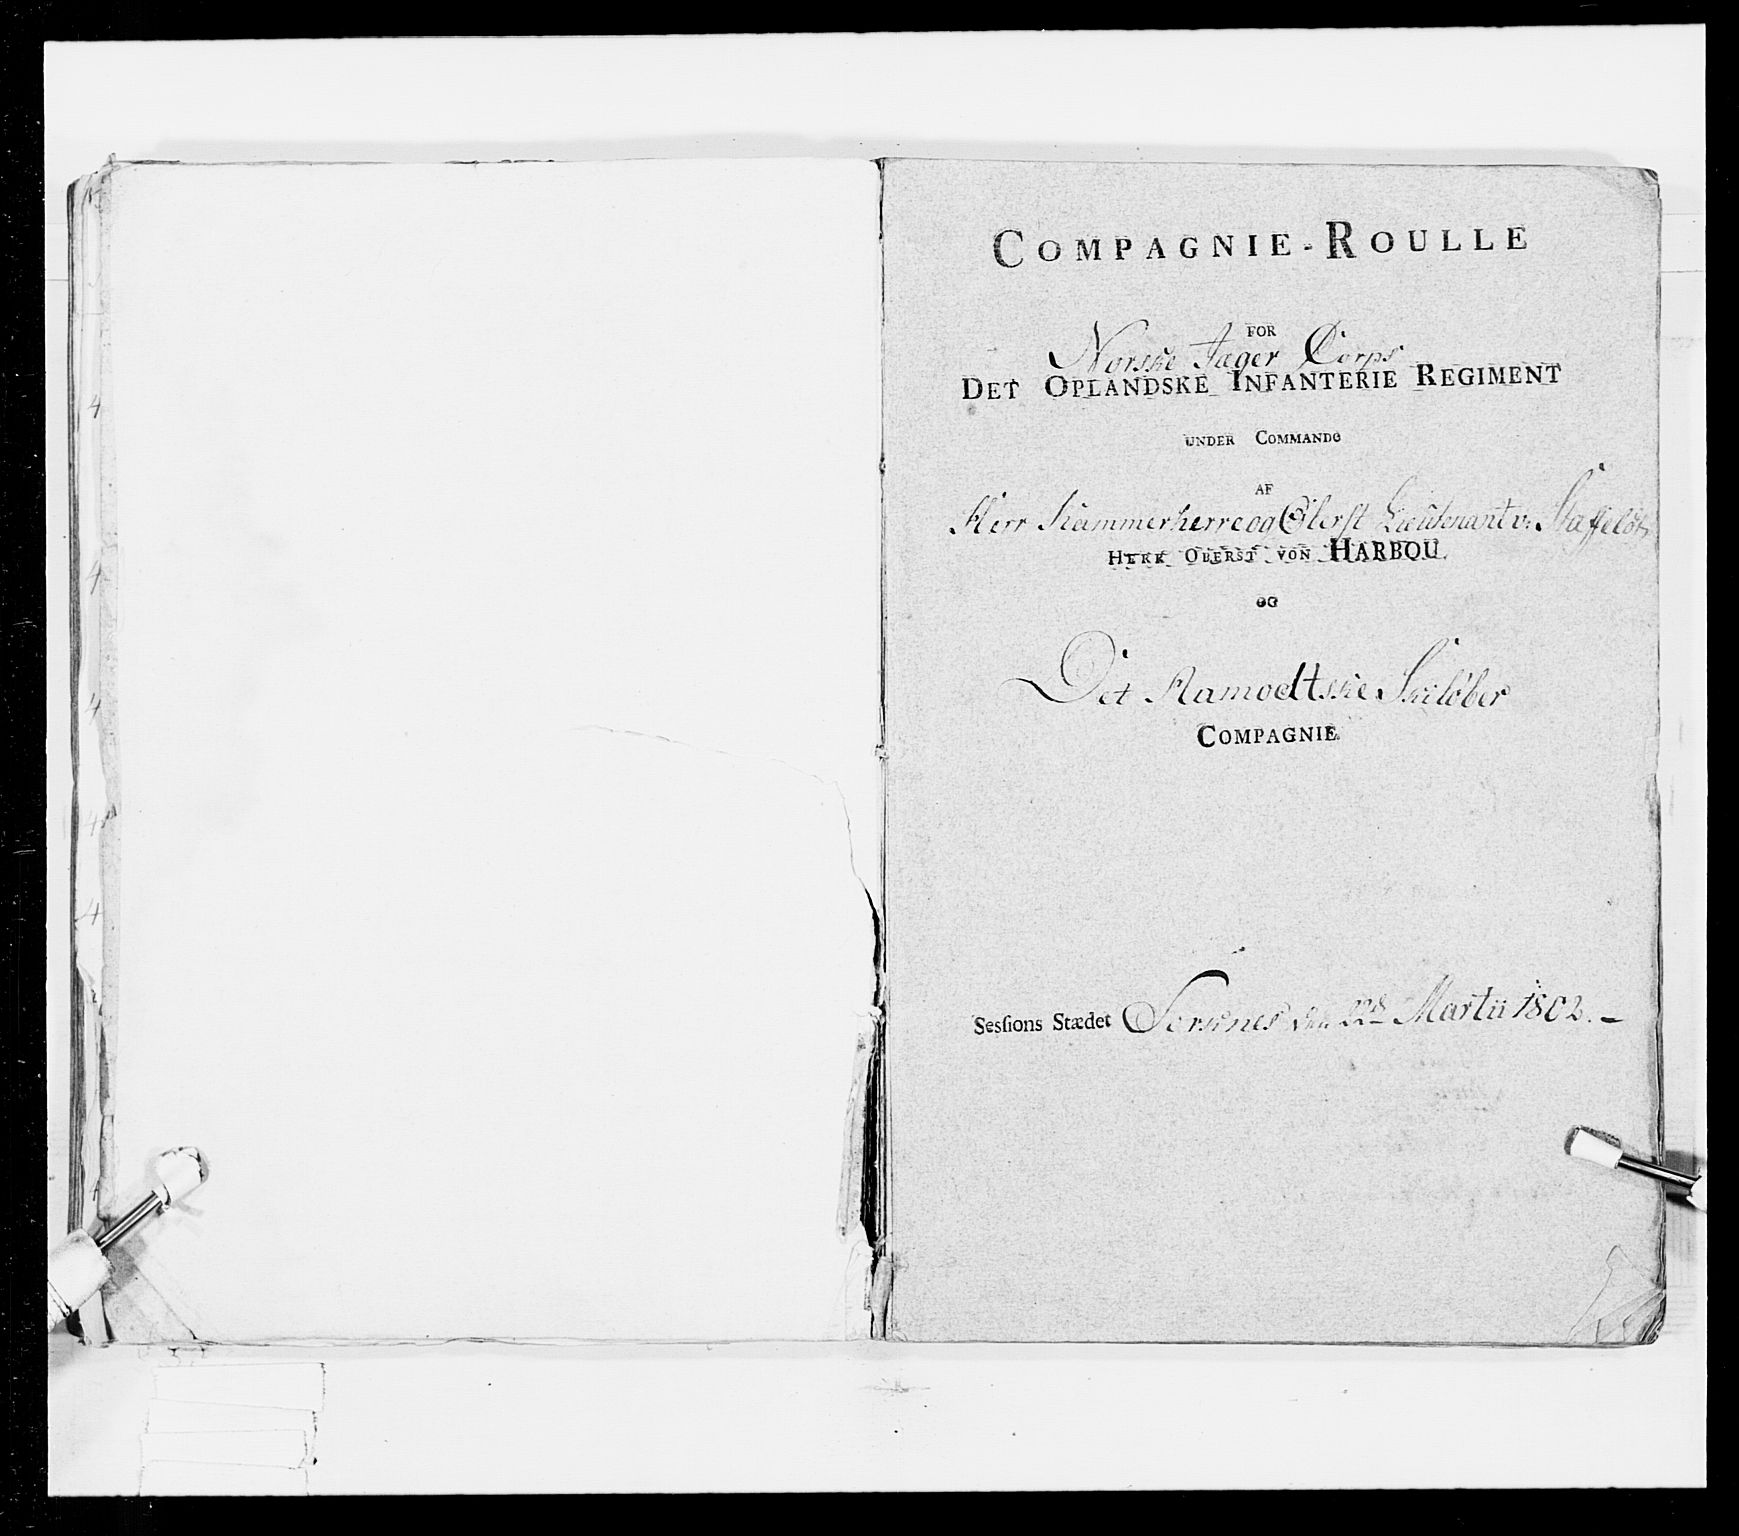 COMPAGNIE-ROULLE
FOR
Norske Jæger Corps
DET OPLANDSKE INFANTERIE REGIMENT
UNDER COMMANDO
AF
Herr Kammerherre og Oberst Lieutenant v: Staffeldt,
HERR OBERST VON HARBOU.
OG
Det Aamodtske Skiløber
COMPAGNIE.
Sesſions Stædet Sorknes den 22d Martii 1802. –
4
4
4
4
4